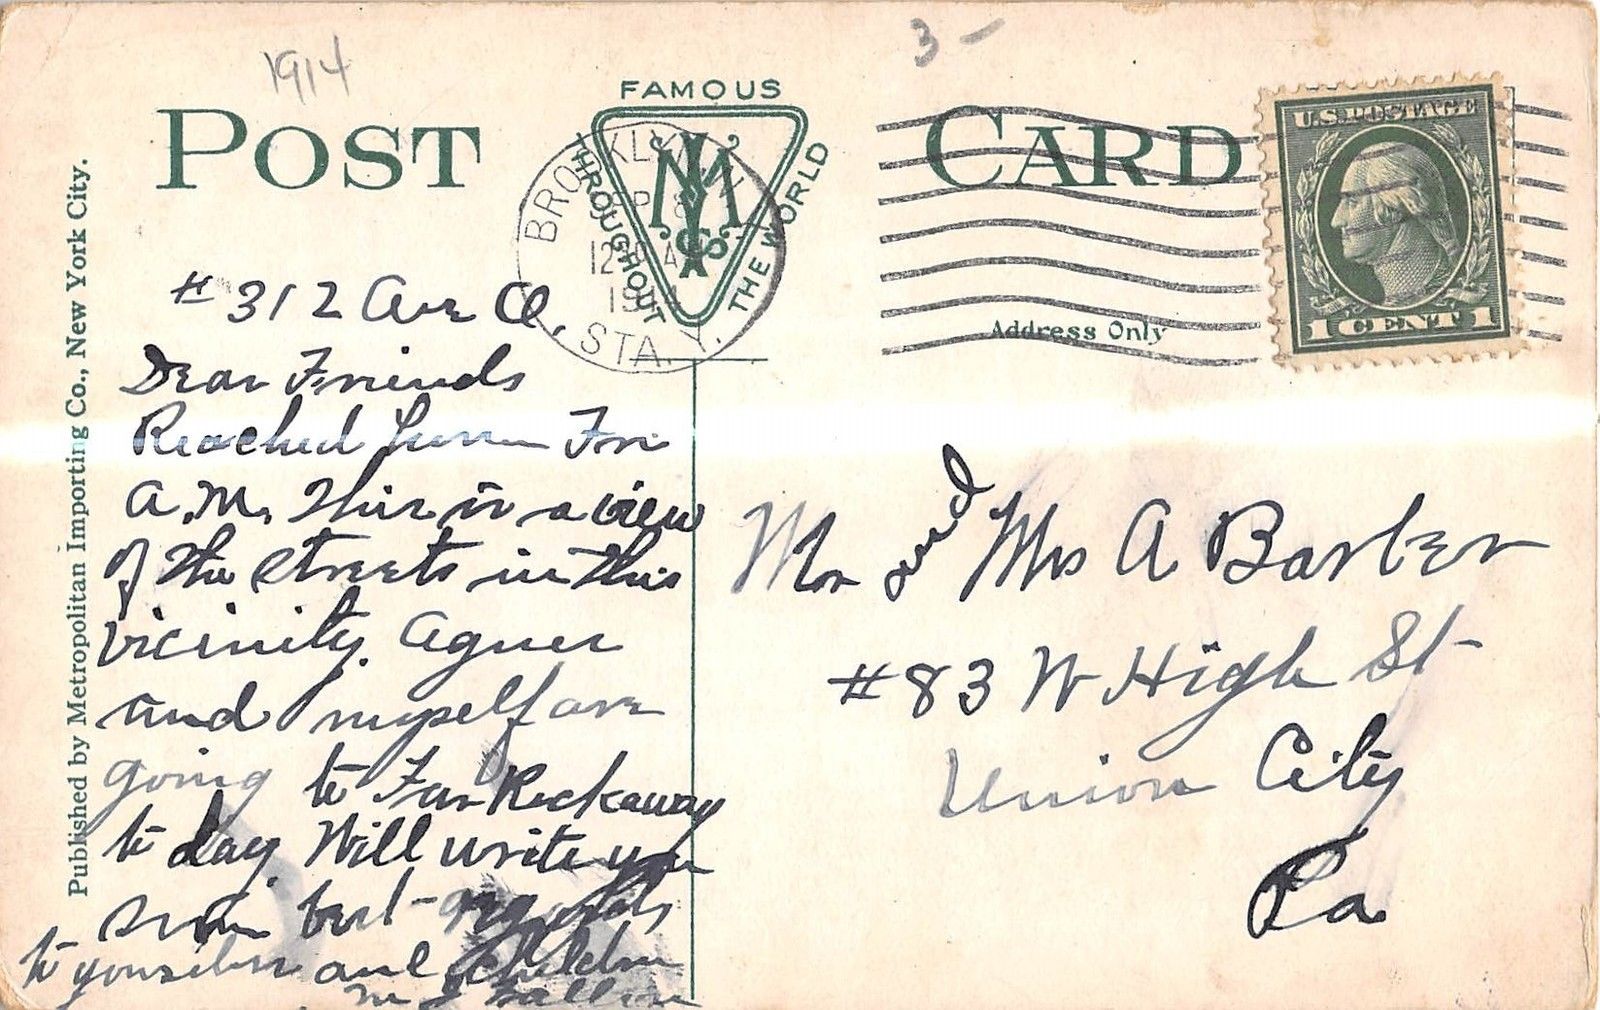 1914
3-
POST CARD
FAMOUS
THROUGHOUT
THE WORLD
BROOKLYN
12
STA. Y.
U.S. POSTAGE
1 CENT 1
Address Only
Published by Metropolitan Importing Co., New York City.
# 312 Ave
Dear Friends
Reached Fri
A.M. This is a view
of the streets in this
vicinity. Agnes
and myself are
going to Far Rockaway
to day. Will write you
soon best regards
to yourselves and Children
Mr and Mrs A Barber
#83 W High St
Union City
Pa